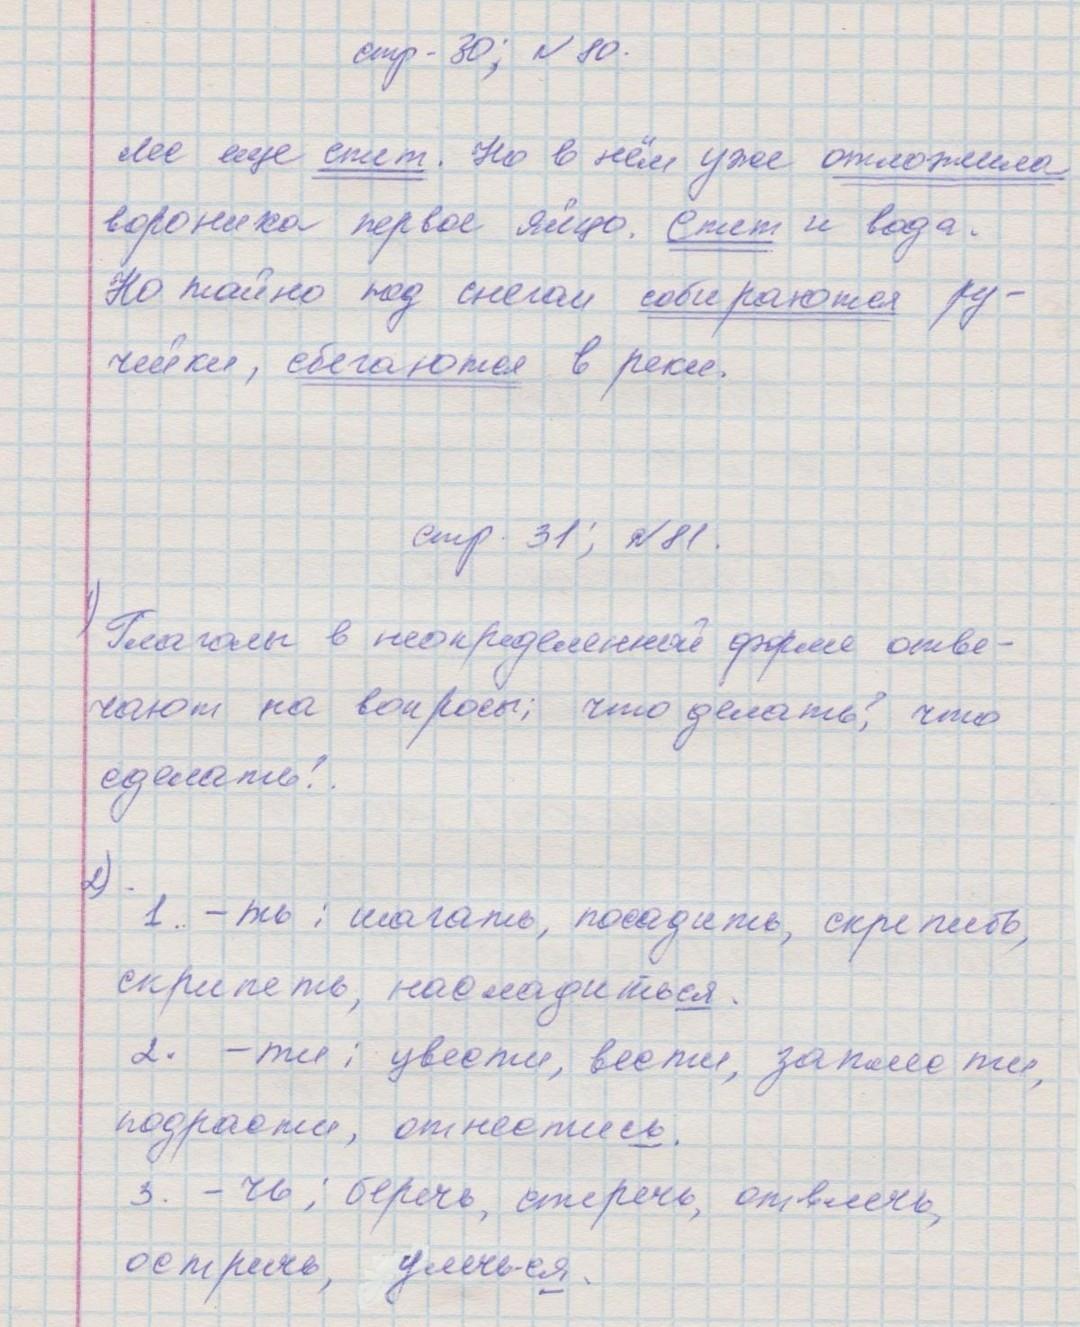 стр. 30; № 80.
Лес еще спит. Но в нём уже отложила
ворониха первое яйцо. Спит и вода.
Но тайно под снегом собираются ру-
чейки, сбегаются в реки.
стр. 31; № 81.
1)
Глаголы в неопределенной форме отве-
чают на вопросы: что делать?, что
сделать?.
2)
1. -ть: шагать, посадить, скрепить,
скрипеть, насладиться.
2. -ти: цвести, вести, заплести,
подрасти, отнестись.
3. -чь: беречь, стеречь, отвлечь,
остричь,